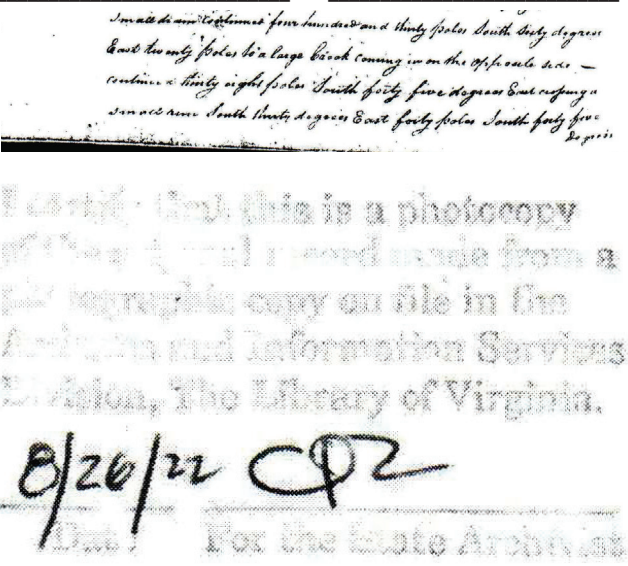 small drain Continued four hundred and thirty poles South Sixty degrees
East twenty poles to a large Creek coming in on the opposite side —
continued thirty eight poles South forty five degrees East crossing a
small run South thirty degrees East forty poles South forty five
degrees
I certify that this is a photocopy
of the record made from a
photographic copy on file in the
Archives and Information Services
Division, The Library of Virginia.
8/26/22
Date For the State Archivist